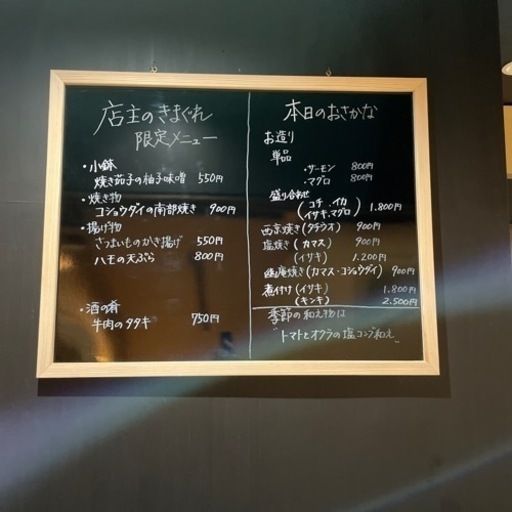 店主のきまぐれ
限定メニュー
・小鉢
焼き茄子の柚子味噌 550円
・焼き物
コショウダイの南部焼き 900円
・揚げ物
さつまいものかき揚げ 550円
ハモの天ぷら 800円
・酒の肴
牛肉のタタキ 750円
本日のおさかな
お造り
単品
・サーモン 800円
・マグロ 800円
盛り合わせ
(コチ.イカ
イサキ.マグロ) 1.800円
西京焼き(タチウオ) 900円
塩焼き(カマス) 900円
(イサキ) 1.200円
幽庵焼き(カマス・コショウダイ) 900円
煮付け(イサキ) 1.800円
(キンキ) 2.500円
季節の和え物は
"トマトとオクラの塩コンブ和え"